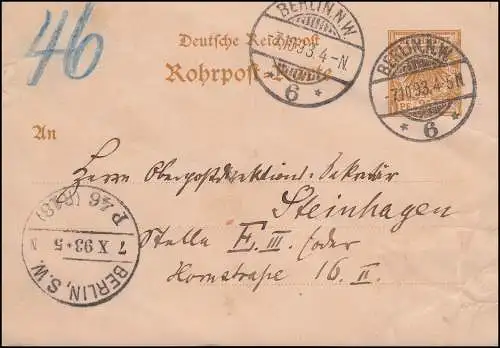 46
BERLIN, N.W.
7.10.93. 4-N.
* 6 *
BERLIN, N.W.
-7.10.93. 4-5N.
* 6 *
Deutsche Reichspost
Rohrpost-Karte
An
Herrn Oberpostdirektions-Sekretär
Steinhagen
Stelle E. III. (oder
Hornstraße 16. II.
P.46 (S48)
7 X 93 * 5 N
BERLIN, S.W.